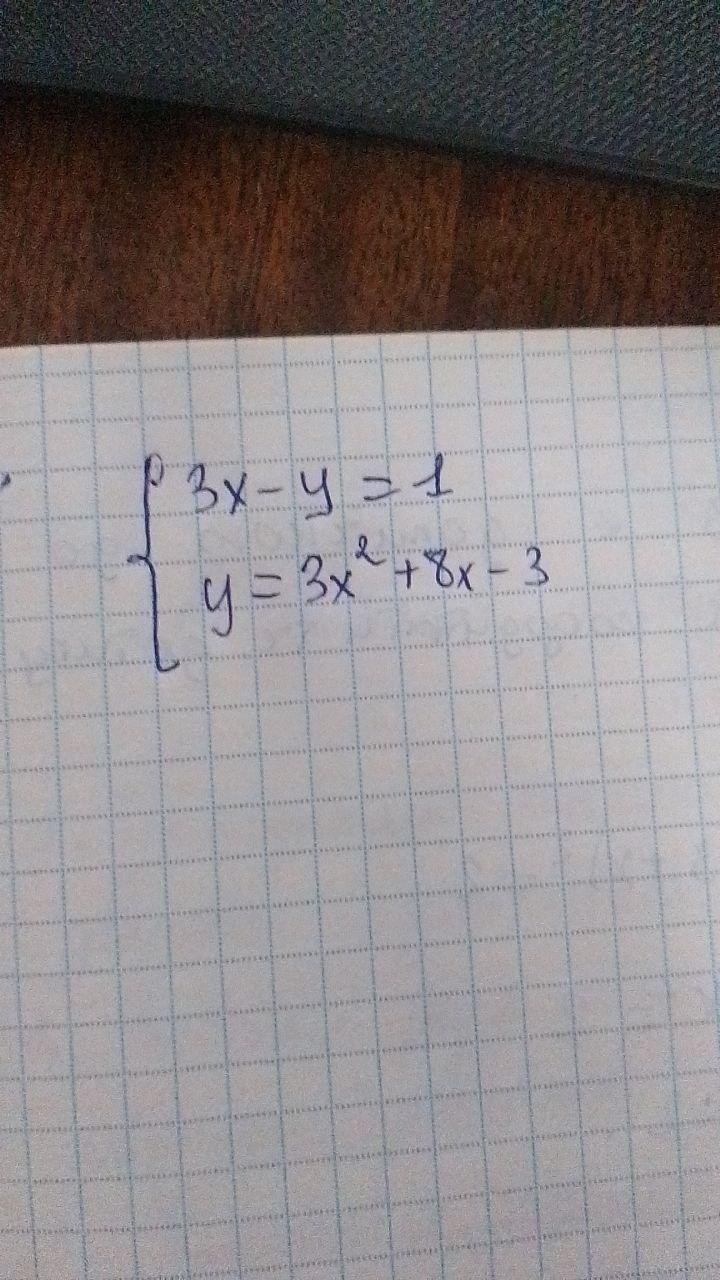 3x - y = 1
y = 3x² + 8x - 3